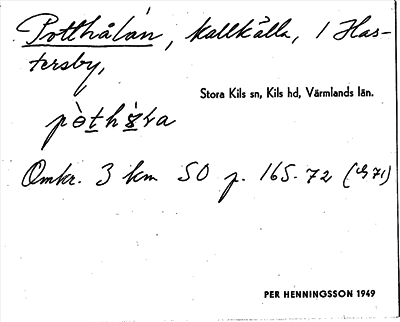 Potthålan, kallkälla, 1 Has-
tersby,
Stora Kils sn, Kils hd, Värmlands län.
Omkr. 3 km SO p. 165.72
PER HENNINGSSON 1949